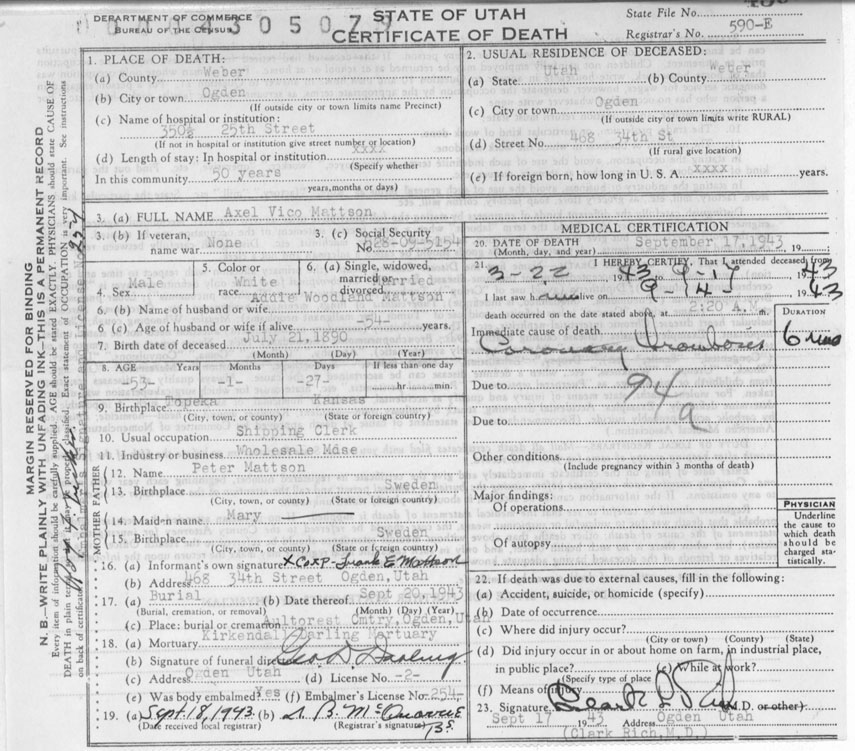 DEPARTMENT OF COMMERCE
BUREAU OF THE CENSUS
305079
STATE OF UTAH
CERTIFICATE OF DEATH
State File No.
Registrar's No. 590-E
1. PLACE OF DEATH:
(a) County Weber
(b) City or town Ogden
(If outside city or town limits name Precinct)
(c) Name of hospital or institution:
350½ 25th Street
(If not in hospital or institution give street number or location)
(d) Length of stay: In hospital or institution xxxx
(Specify whether
In this community 50 years
years, months or days)
2. USUAL RESIDENCE OF DECEASED:
(a) State Utah (b) County Weber
(c) City or town Ogden
(If outside city or town limits write RURAL)
(d) Street No. 468 34th St
(If rural give location)
(e) If foreign born, how long in U. S. A. xxxx years.
3. (a) FULL NAME Axel Vico Mattson
3. (b) If veteran, name war None
3. (c) Social Security No. 528-09-5154
4. Sex Male
5. Color or race White
6. (a) Single, widowed, married or divorced Married
6. (b) Name of husband or wife Addie Woodland Mattson
6. (c) Age of husband or wife if alive -54- years.
7. Birth date of deceased July 21, 1890
(Month) (Day) (Year)
8. AGE Years Months Days If less than one day
-53- -1- -27- hr. min.
9. Birthplace Topeka Kansas
(City, town, or county) (State or foreign country)
10. Usual occupation Shipping Clerk
11. Industry or business Wholesale Mdse
FATHER
12. Name Peter Mattson
13. Birthplace Sweden
(City, town, or county) (State or foreign country)
MOTHER
14. Maiden name Mary
15. Birthplace Sweden
(City, town, or county) (State or foreign country)
16. (a) Informant's own signature Frank E Mattson
(b) Address 468 34th Street Ogden, Utah
17. (a) Burial (b) Date thereof Sept 20, 1943
(Burial, cremation, or removal) (Month) (Day) (Year)
(c) Place: burial or cremation Aultorest Cmtry, Ogden, Utah
18. (a) Mortuary Kirkendall Darling Mortuary
(b) Signature of funeral director Geo D Darling
(c) Address Ogden Utah (d) License No. -2-
(e) Was body embalmed? Yes (f) Embalmer's License No. 254-
19. (a) Sept. 18, 1943 (b)
(Date received local registrar) (Registrar's signature)
MEDICAL CERTIFICATION
20. DATE OF DEATH September 17, 1943 19
(Month, day, and year)
21. I HEREBY CERTIFY, That I attended deceased from
3-22 1943 to 9-17 1943
I last saw him alive on 9-14- 1943
death occurred on the date stated above, at 2:20 A.M. m.
DURATION
Immediate cause of death
Coronary Trombosis 6 mos
Due to 94a
Due to
Other conditions
(Include pregnancy within 3 months of death)
Major findings:
Of operations
Of autopsy
PHYSICIAN
Underline
the cause to
which death
should be
charged sta-
tistically.
22. If death was due to external causes, fill in the following:
(a) Accident, suicide, or homicide (specify)
(b) Date of occurrence
(c) Where did injury occur?
(City or town) (County) (State)
(d) Did injury occur in or about home on farm, in industrial place,
in public place? (e) While at work?
(Specify type of place)
(f) Means of injury
23. Signature (M.D. or other)
Sept 17 1943 Address Ogden Utah
(Clark Rich, M.D.)
MARGIN RESERVED FOR BINDING
N. B.—WRITE PLAINLY WITH UNFADING INK—THIS IS A PERMANENT RECORD
Every item of information should be carefully supplied. AGE should be stated EXACTLY. PHYSICIANS should state CAUSE OF
DEATH in plain terms, so that it may be properly classified. Exact statement of OCCUPATION is very important. See instructions
on back of certificate.